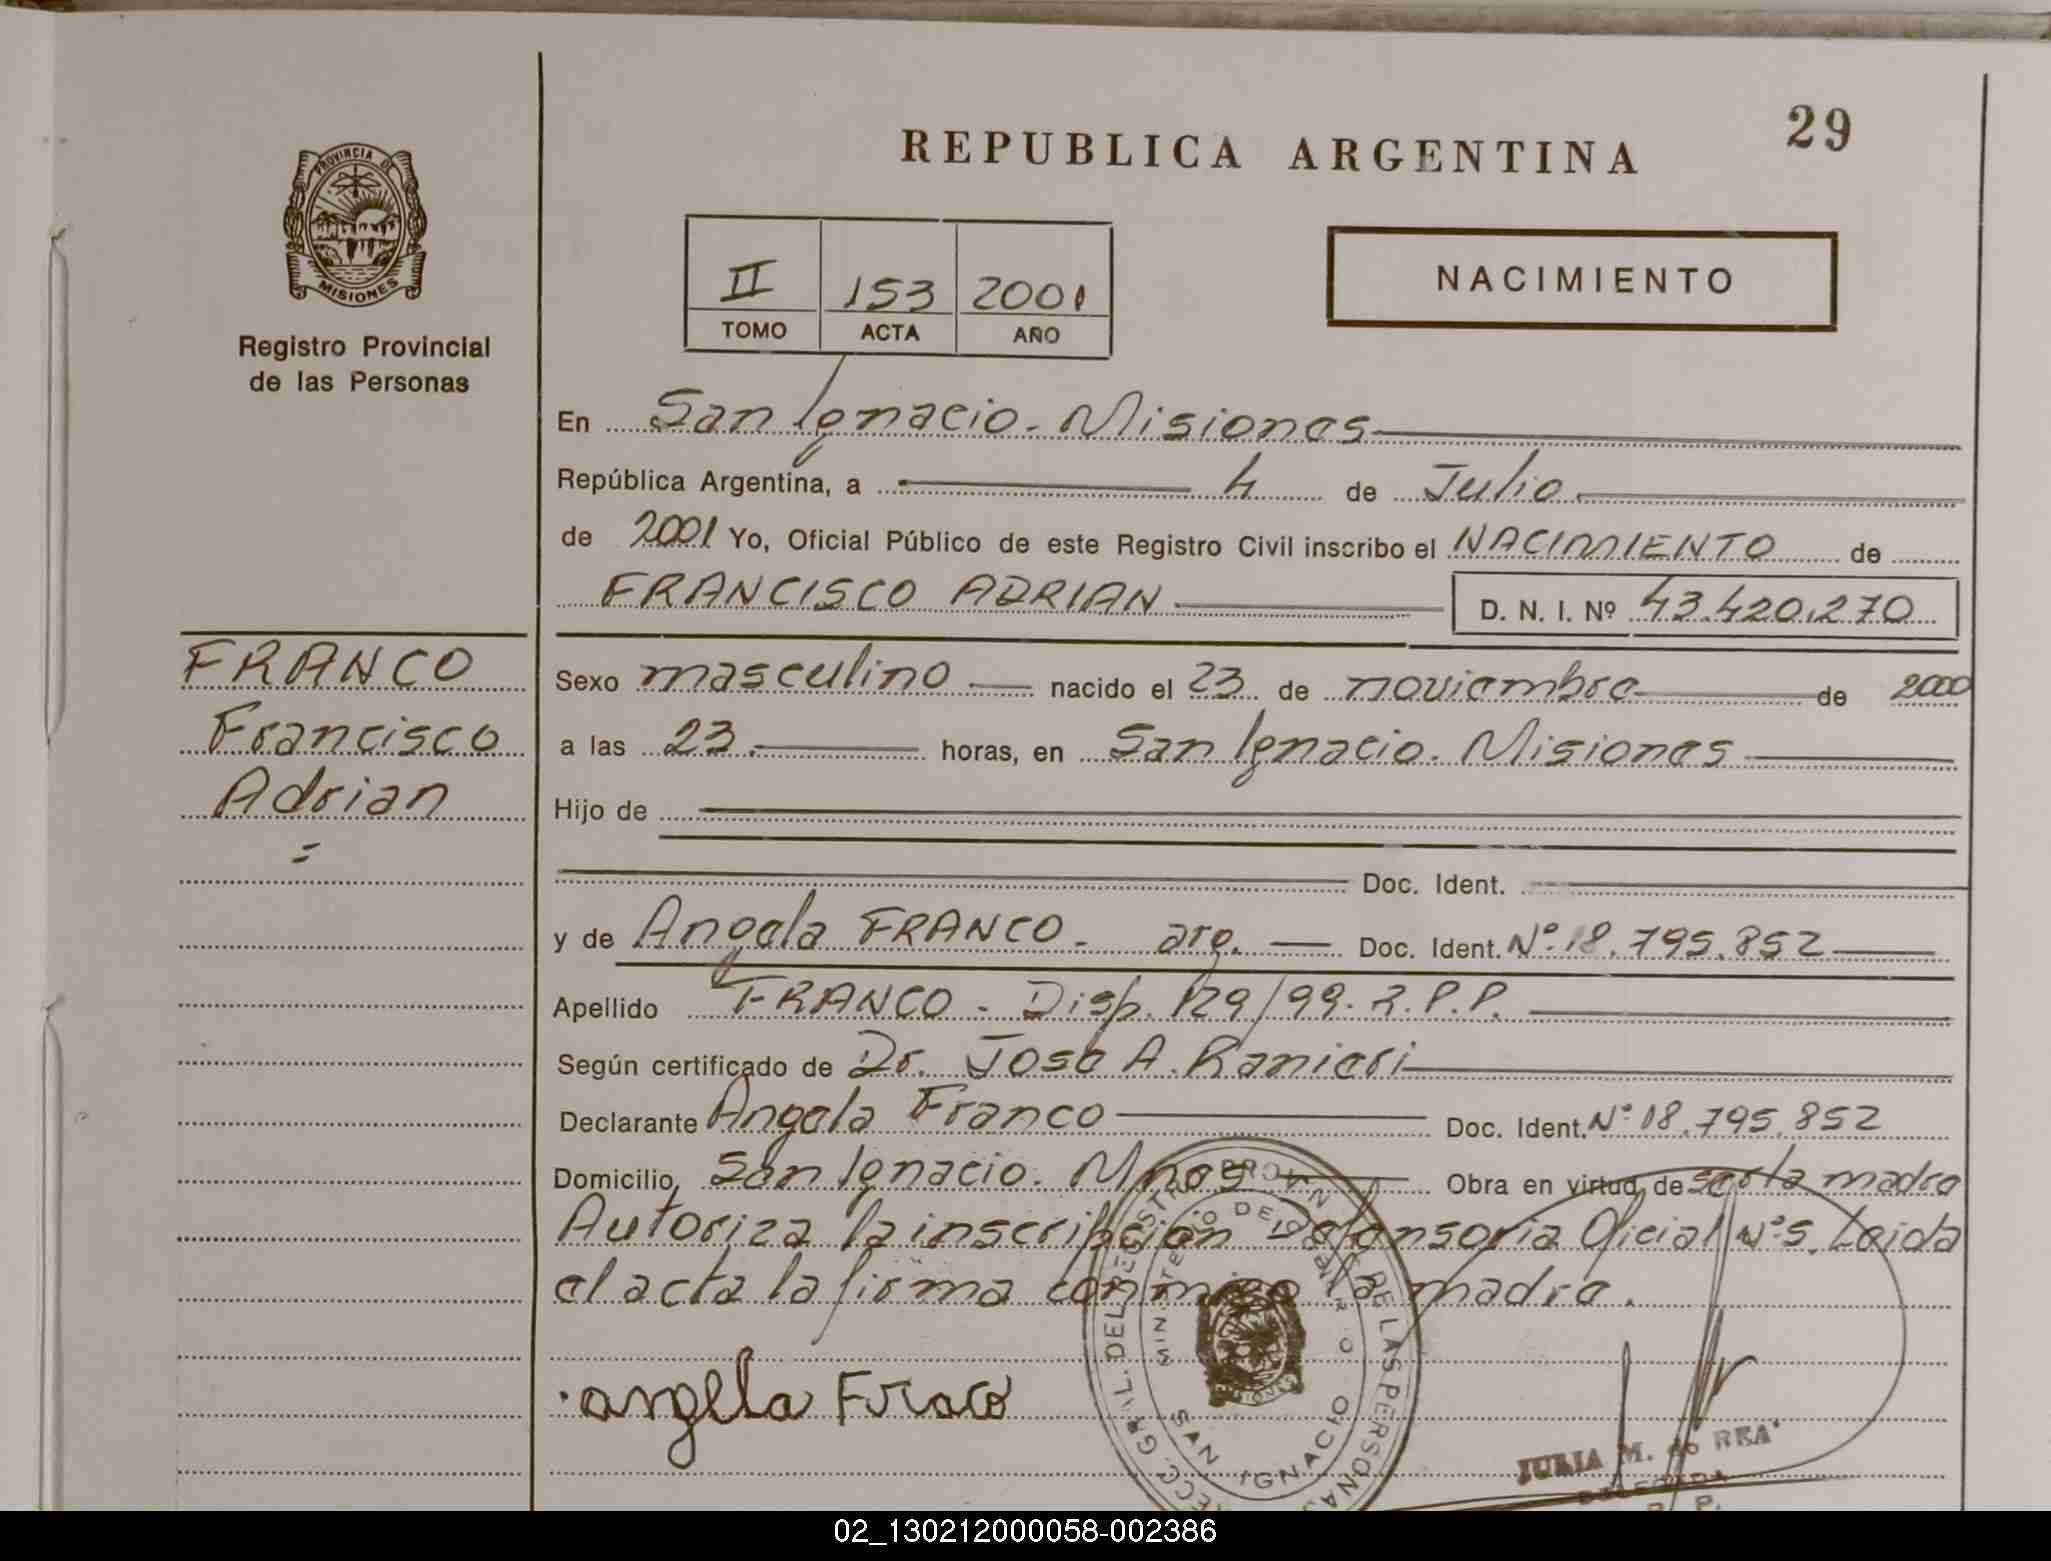 29
REPUBLICA ARGENTINA
PROVINCIA DE
MISIONES
Registro Provincial
de las Personas
II 153 2001
TOMO ACTA AÑO
NACIMIENTO
En San Ignacio - Misiones
República Argentina, a 4 de Julio
de 2001 Yo, Oficial Público de este Registro Civil inscribo el NACIMIENTO de
FRANCISCO ADRIAN D. N. I. Nº 43.420.270
FRANCO
Francisco
Adrian
=
Sexo masculino nacido el 23 de noviembre de 2000
a las 23 horas, en San Ignacio - Misiones
Hijo de
Doc. Ident.
y de Angela FRANCO - arg. Doc. Ident. Nº 18.795.852
Apellido FRANCO - Disp. 129/99. R.P.P.
Según certificado de Dr. Jose A. Ranieri
Declarante Angela Franco Doc. Ident. Nº 18.795.852
Domicilio San Ignacio. Mnes Obra en virtud de ser la madre
Autoriza la inscripción Defensoria Oficial Nº 5. Leida
el acta la firma conmigo la madre.
angella Fraco
DEL REGISTRO PROVIN DE LAS PERSONAS
MINISTERIO DE GOBIERNO
SAN IGNACIO
MISIONES
JULIA M. do REA
DELEGADA
02_130212000058-002386